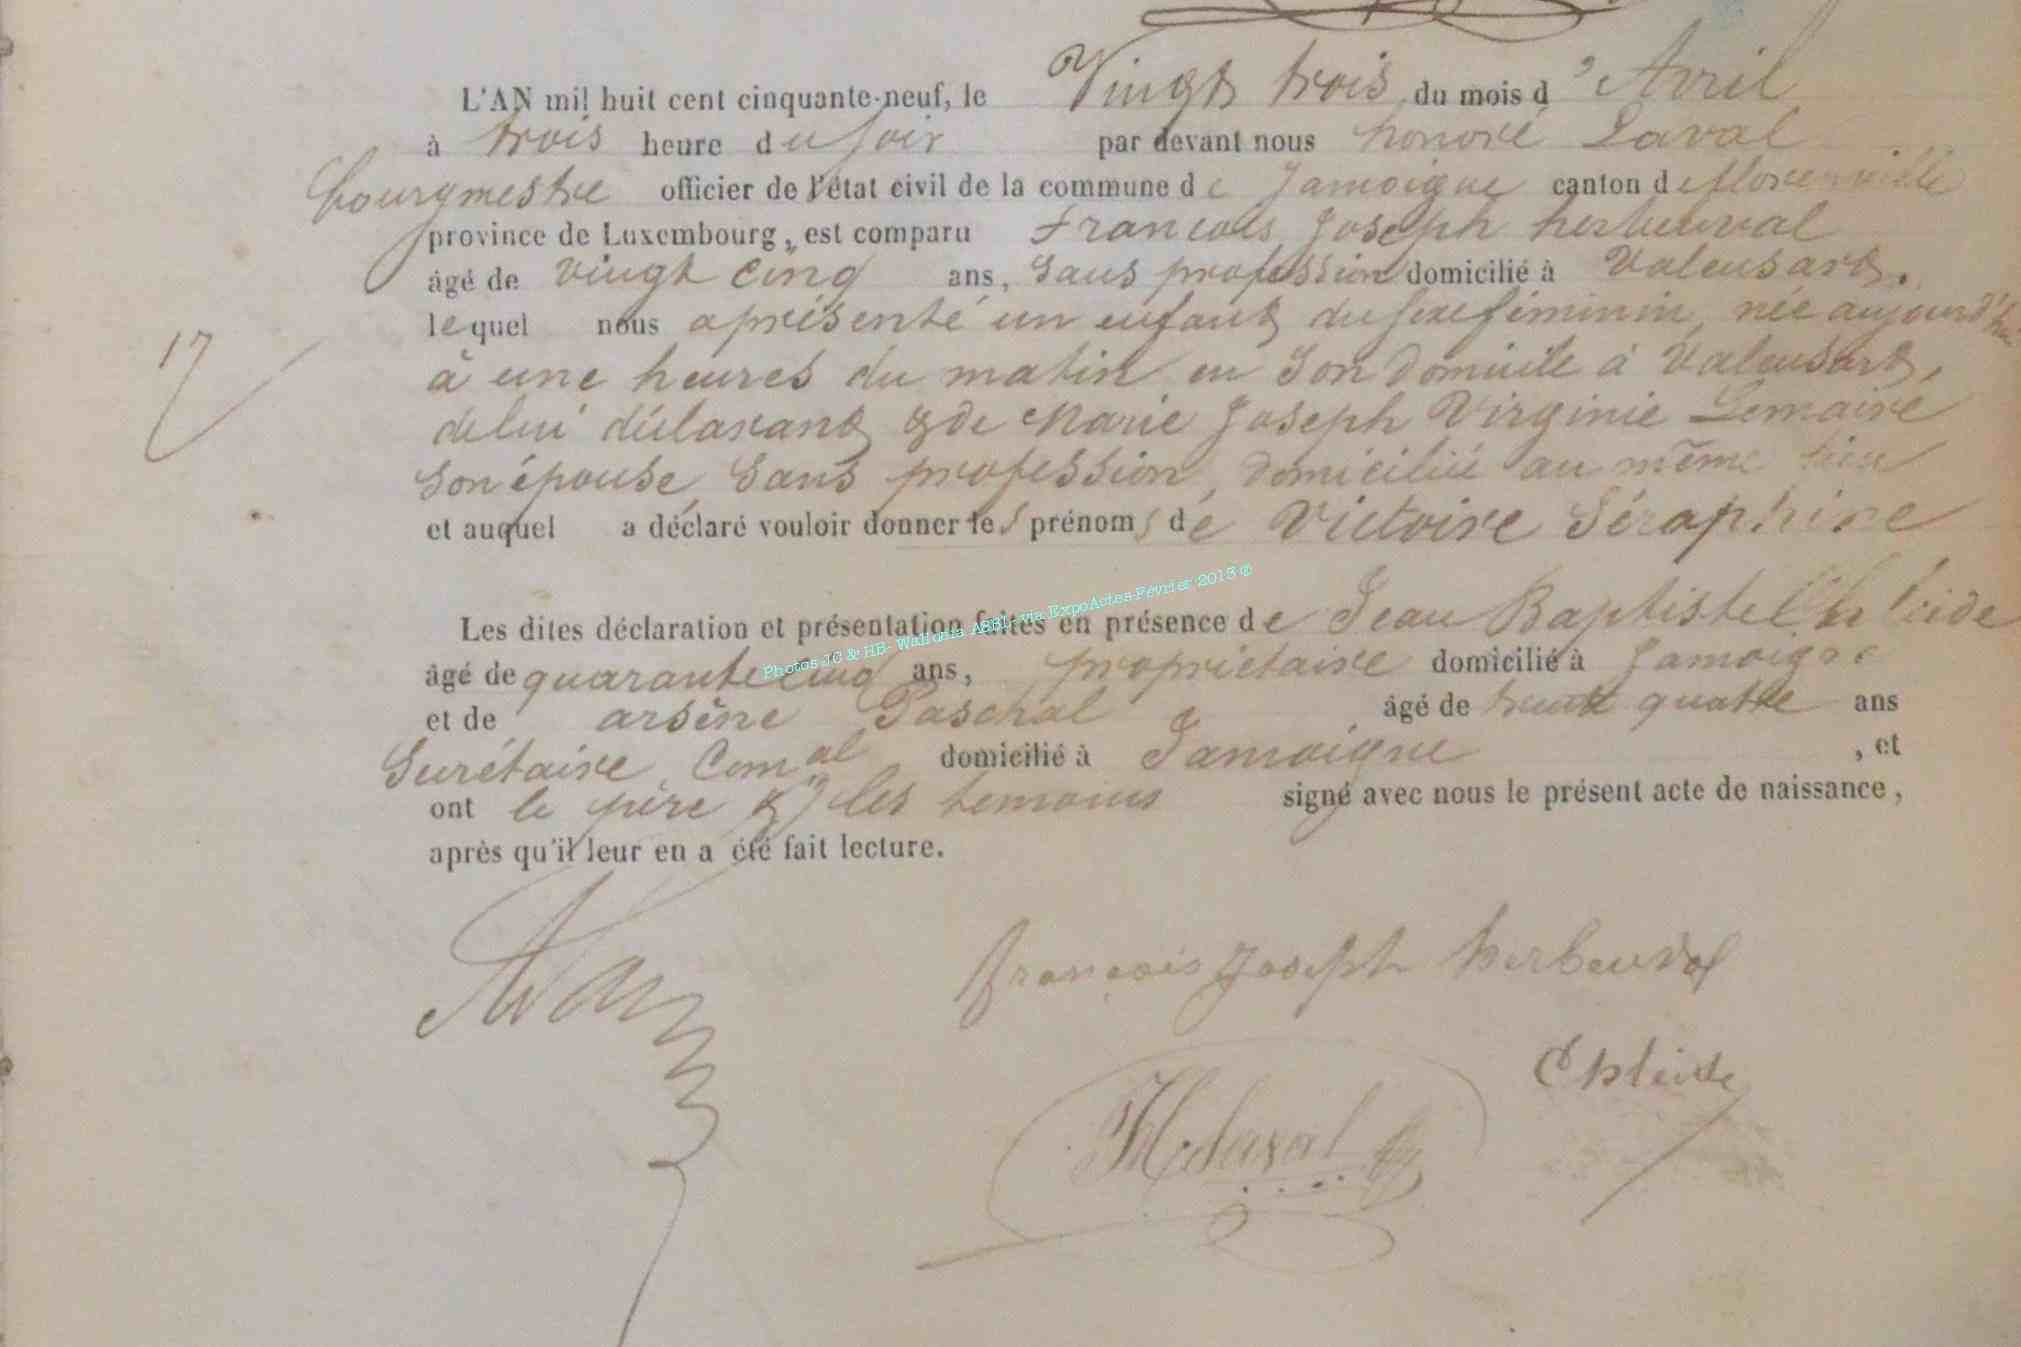 L'AN mil huit cent cinquante-neuf, le Vingt trois du mois d'Avril
à trois heure du soir par devant nous honoré Laval
bourgmestre officier de l'état civil de la commune de Jamoigne canton de florenville
province de Luxembourg, est comparu François Joseph herbeuval
âgé de vingt cinq ans, Sans profession domicilié à Valensart.
lequel nous a présenté un enfant du sexe féminin, née aujourd'hui
17
à une heures du matin en Son domicile à Valensart,
de lui déclarant & de Marie Joseph Virginie Lemaire
Son épouse, Sans profession, domiciliée au même lieu
et auquel a déclaré vouloir donner les prénoms de Victoire Séraphine
Photos JC & HB- Wallonia ASBL- via ExpoActes-Février 2013 ©
Les dites déclaration et présentation faites en présence de Jean Baptiste
âgé de quarante cinq ans, propriétaire domicilié à Jamoigne
et de arsène Paschal âgé de trente quatre ans
Secrétaire Comal domicilié à Jamoigne, et
ont le père & les temoins signé avec nous le présent acte de naissance,
après qu'il leur en a été fait lecture.
françois Joseph herbeuval
H. Laval